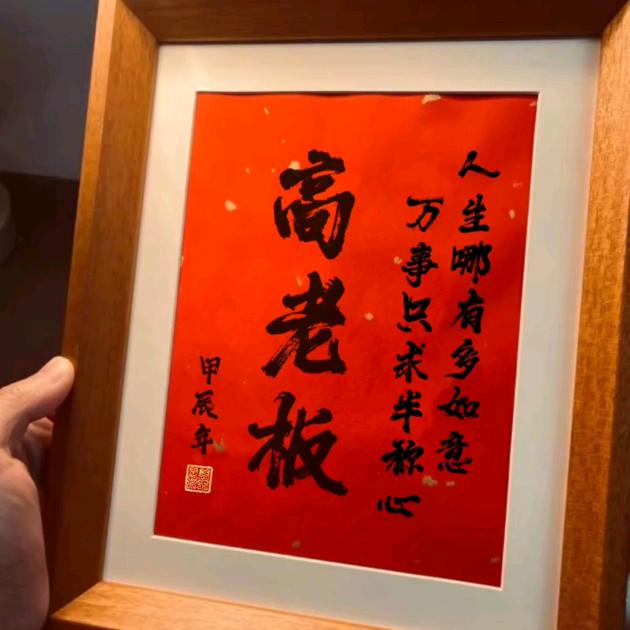 人生哪有多如意
万事只求半称心
高老板
甲辰年